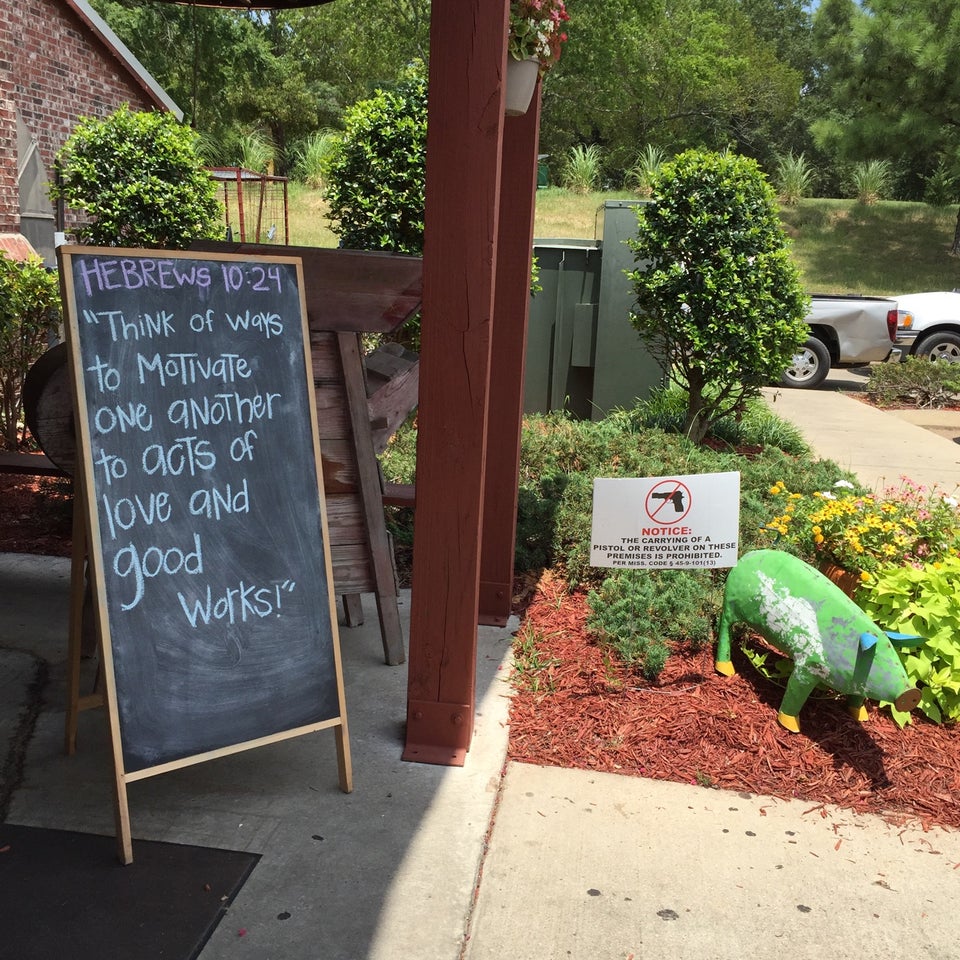 HEBREWS 10:24
"THiNK of ways
to MOTIVATE
ONE aNOTHER
to acTS of
love aND
good
WORKS!"
NOTICE:
THE CARRYING OF A
PISTOL OR REVOLVER ON THESE
PREMISES IS PROHIBITED.
PER MISS. CODE § 45-9-101(13)